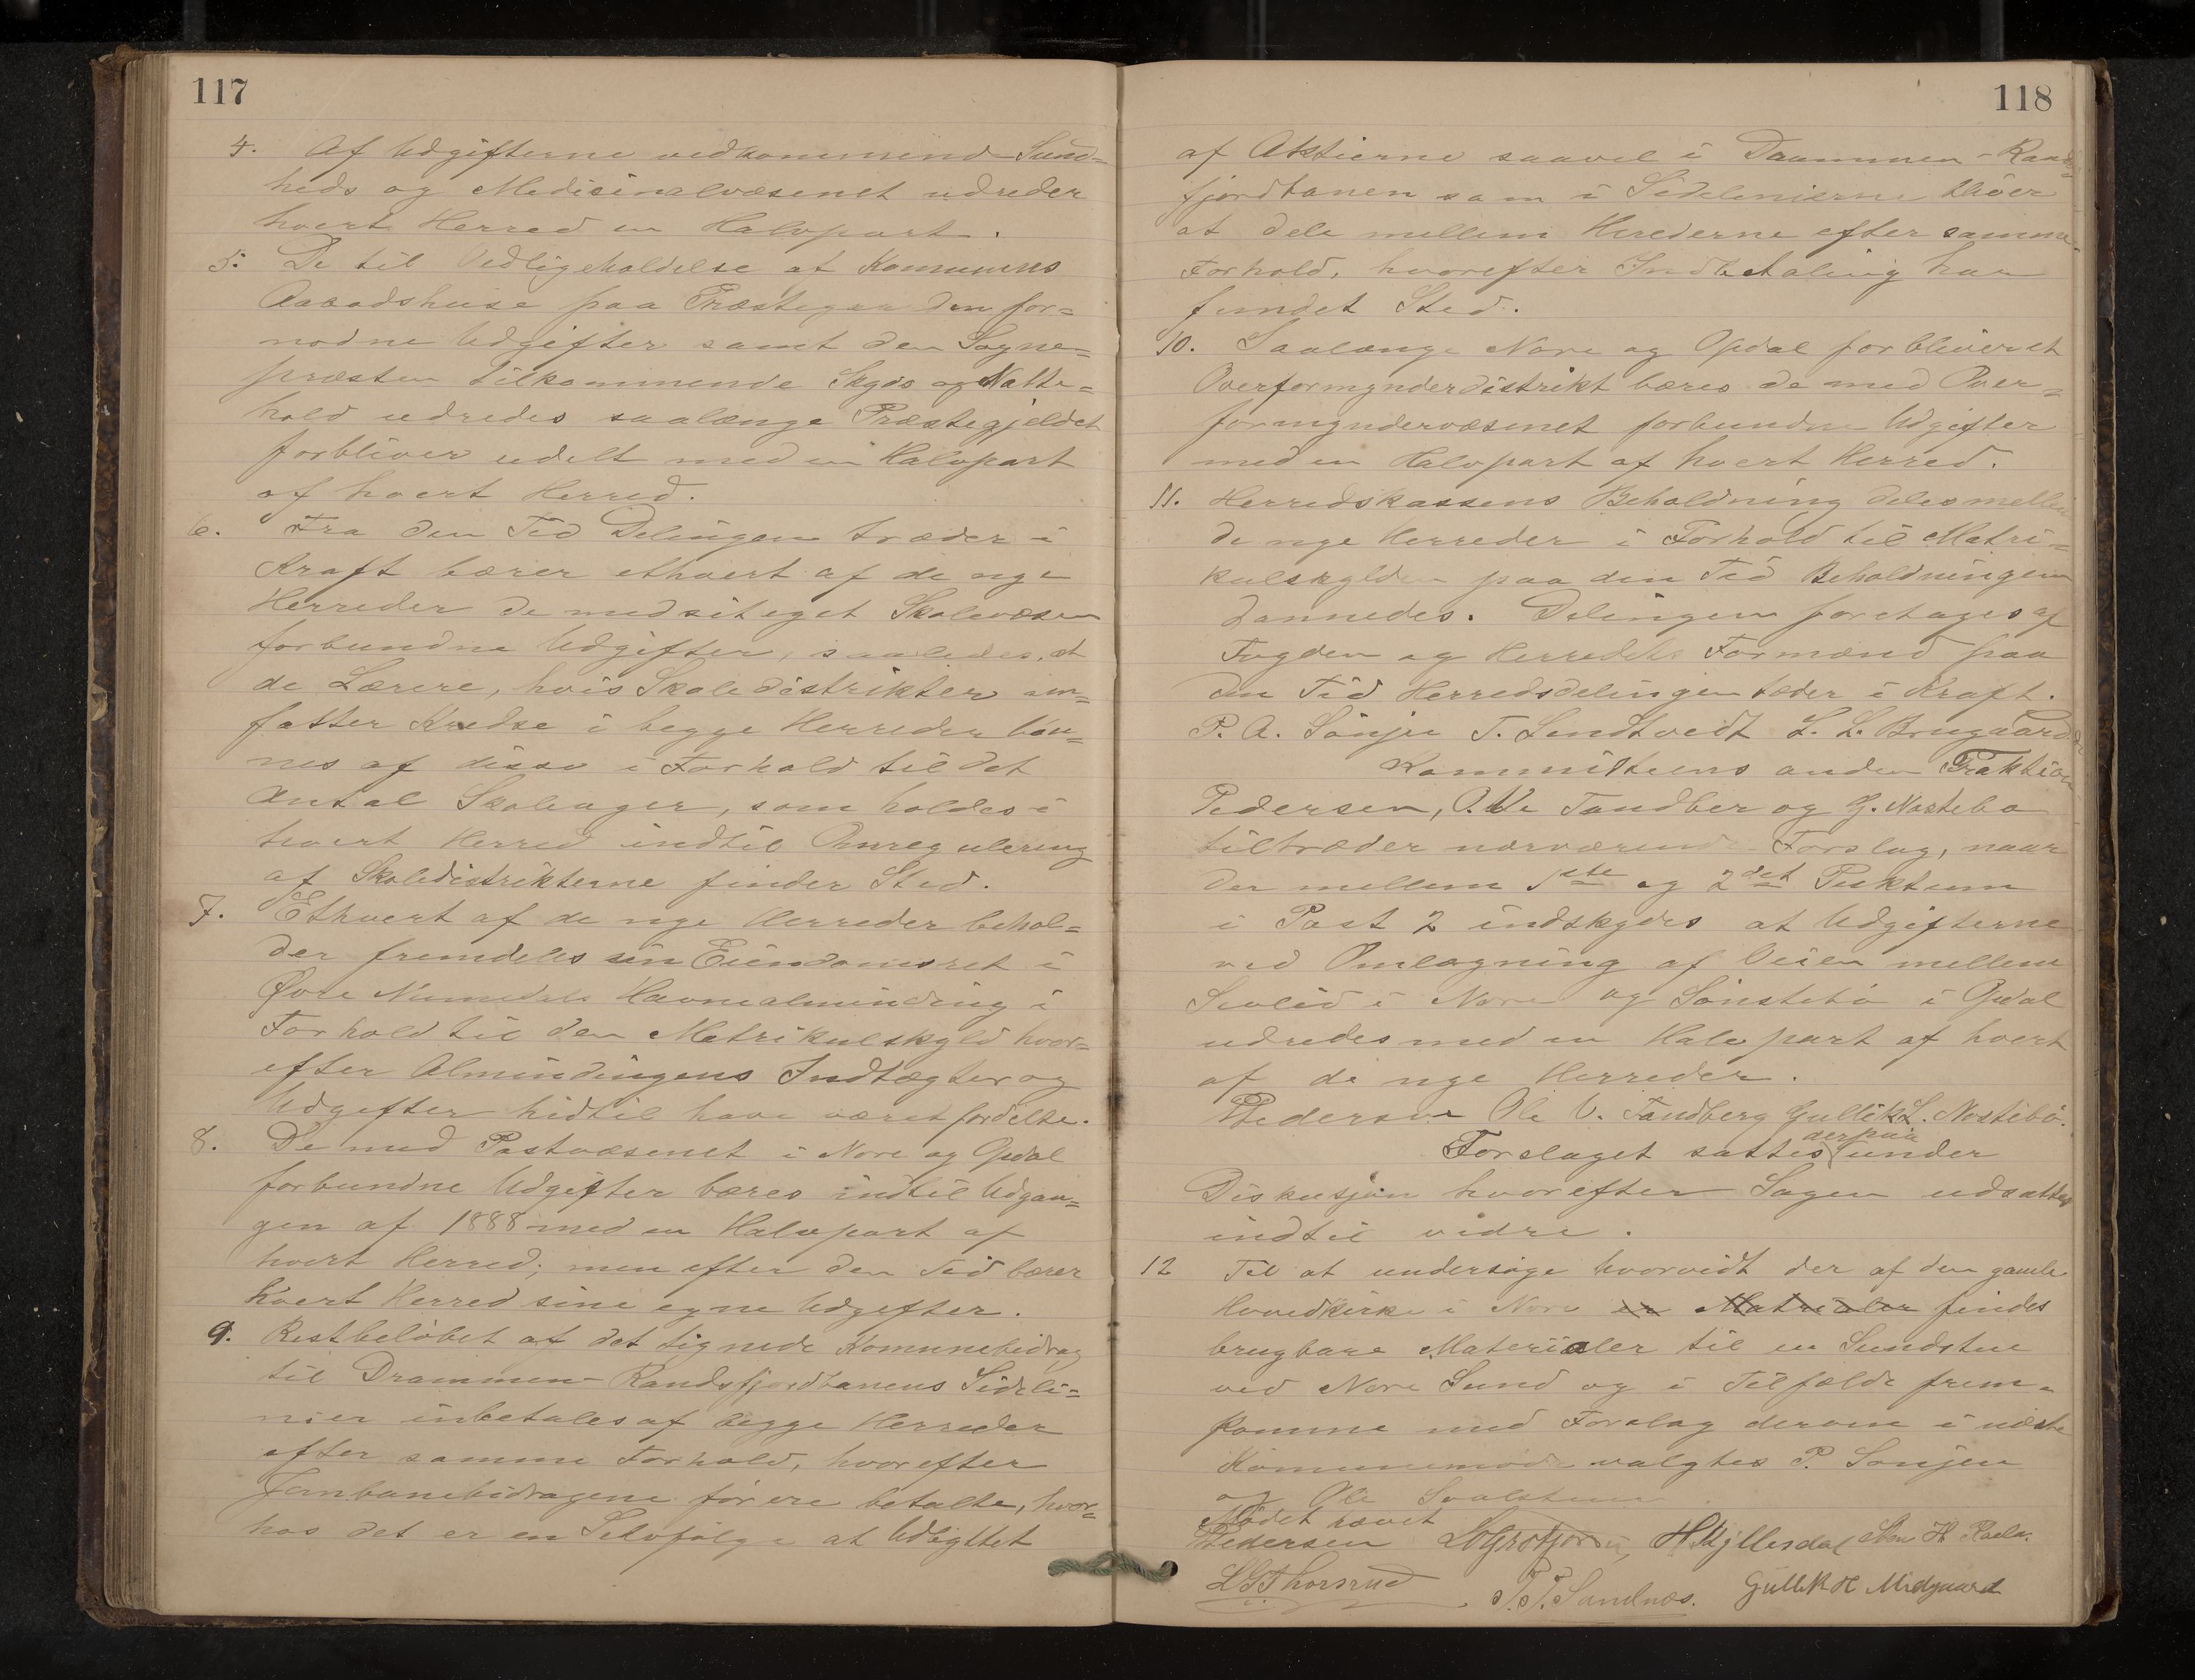 117
4. Af Udgifterne vedkommende Sund=
heds og Medicinalvæsenet udreder
hvert Herred en Halvpart.
5. De til Vedligeholdelse af Komunens
Aabodshuse paa Præstegaarden for=
nødne Udgifter samt den Sogne=
præsten tilkommende Skyds og Natte=
hold udredes saalænge Præstegjeldet
forbliver udelt med en Halvpart
af hvert Herred.
6. Fra den Tid Delingen træder i
Kraft bærer ethvert af de nye
Herreder de med sit eget Skolevæsen
forbundne Udgifter, saaledes, at
de Lærere, hvis Skoledistrikter om=
fatter Kredse i begge Herreder løn=
nes af disse i Forhold til det
Antal Skoleuger, som holdes i
hvert Herred indtil Omregulering
af Skoledistrikterne finder Sted.
7. Ethvert af de nye Herreder behol=
der fremdeles sin Eiendomsret i
Øvre Numedals Havnealminding i
Forhold til den Matrikulskyld hvor=
efter Almindingens Indtægter og
Udgifter hidtil have været fordelte.
8. De med Postvæsenet i Nore og Opdal
forbundne Udgifter bæres indtil Udgan=
gen af 1888 med en Halvpart af
hvert Herred; men efter den Tid bærer
hvert Herred sine egne Udgifter.
9. Restbeløbet af det tegnede Komunebidrag
til Drammen-Randsfjordbanens Sideli=
nier inbetales af begge Herreder
efter samme Forhold, hvorefter
Jernbanebidragene før ere betalte, hvor=
hos det er en Selvfølge at Udbyttet
118
af Aktierne saavel i Drammen-Rands=
fjordbanen som i Sidelinierne bliver
at dele mellem Herederne efter samme
Forhold, hvorefter Indbetaling har
fundet Sted.
10. Saalænge Nore og Opdal forbliver et
Overformynderdistrikt bæres de med Over=
formyndervæsenet forbundne Udgifter
med en Halvpart af hvert Herred.
11. Herredskassens Beholdning deles mellem
de nye Herreder i Forhold til Matri=
kulskylden paa den Tid Beholdningen
dannedes. Delingen foretages af
Fogden og Herredets Formænd paa
den Tid Herredsdelingen tæder i Kraft.
P. A. Sönju T. Lindtvedt L. L. Brugaard
Kommitteens anden Fraktion
Pedersen, O. V. Tandber og G. Nøstebø
tiltræder nærværende Forslag, naar
der mellem 1ste og 2det Puktum
i Post 2 indskydes at Udgifterne
ved Omlægning af Veien mellem
Sevlid i Nore og Sönstebö i Opdal
udredes med en Halv part af hvert
af de nye Herreder.
Pedersen Ole V. Tandberg Gullik L. Nøstebö.
Forslaget sattes derpaa under
Diskusjon hvorefter Sagen udsattes
indtil vidre.
12 Til at undersøge hvorvidt der af den gamle
Hovedkirke i Nore er Matrialer findes
brugbare Materialer til en Sundstue
ved Nore Sund og i Tilfælde frem=
komme med Forslag derom i næste
Komunemøde valgtes P. Sönjen
og Ole
Mödet hævet
Pedersen H Kjillesdal
L G Thorsrud T. T. Sandnæs. Gullik H Midgaard